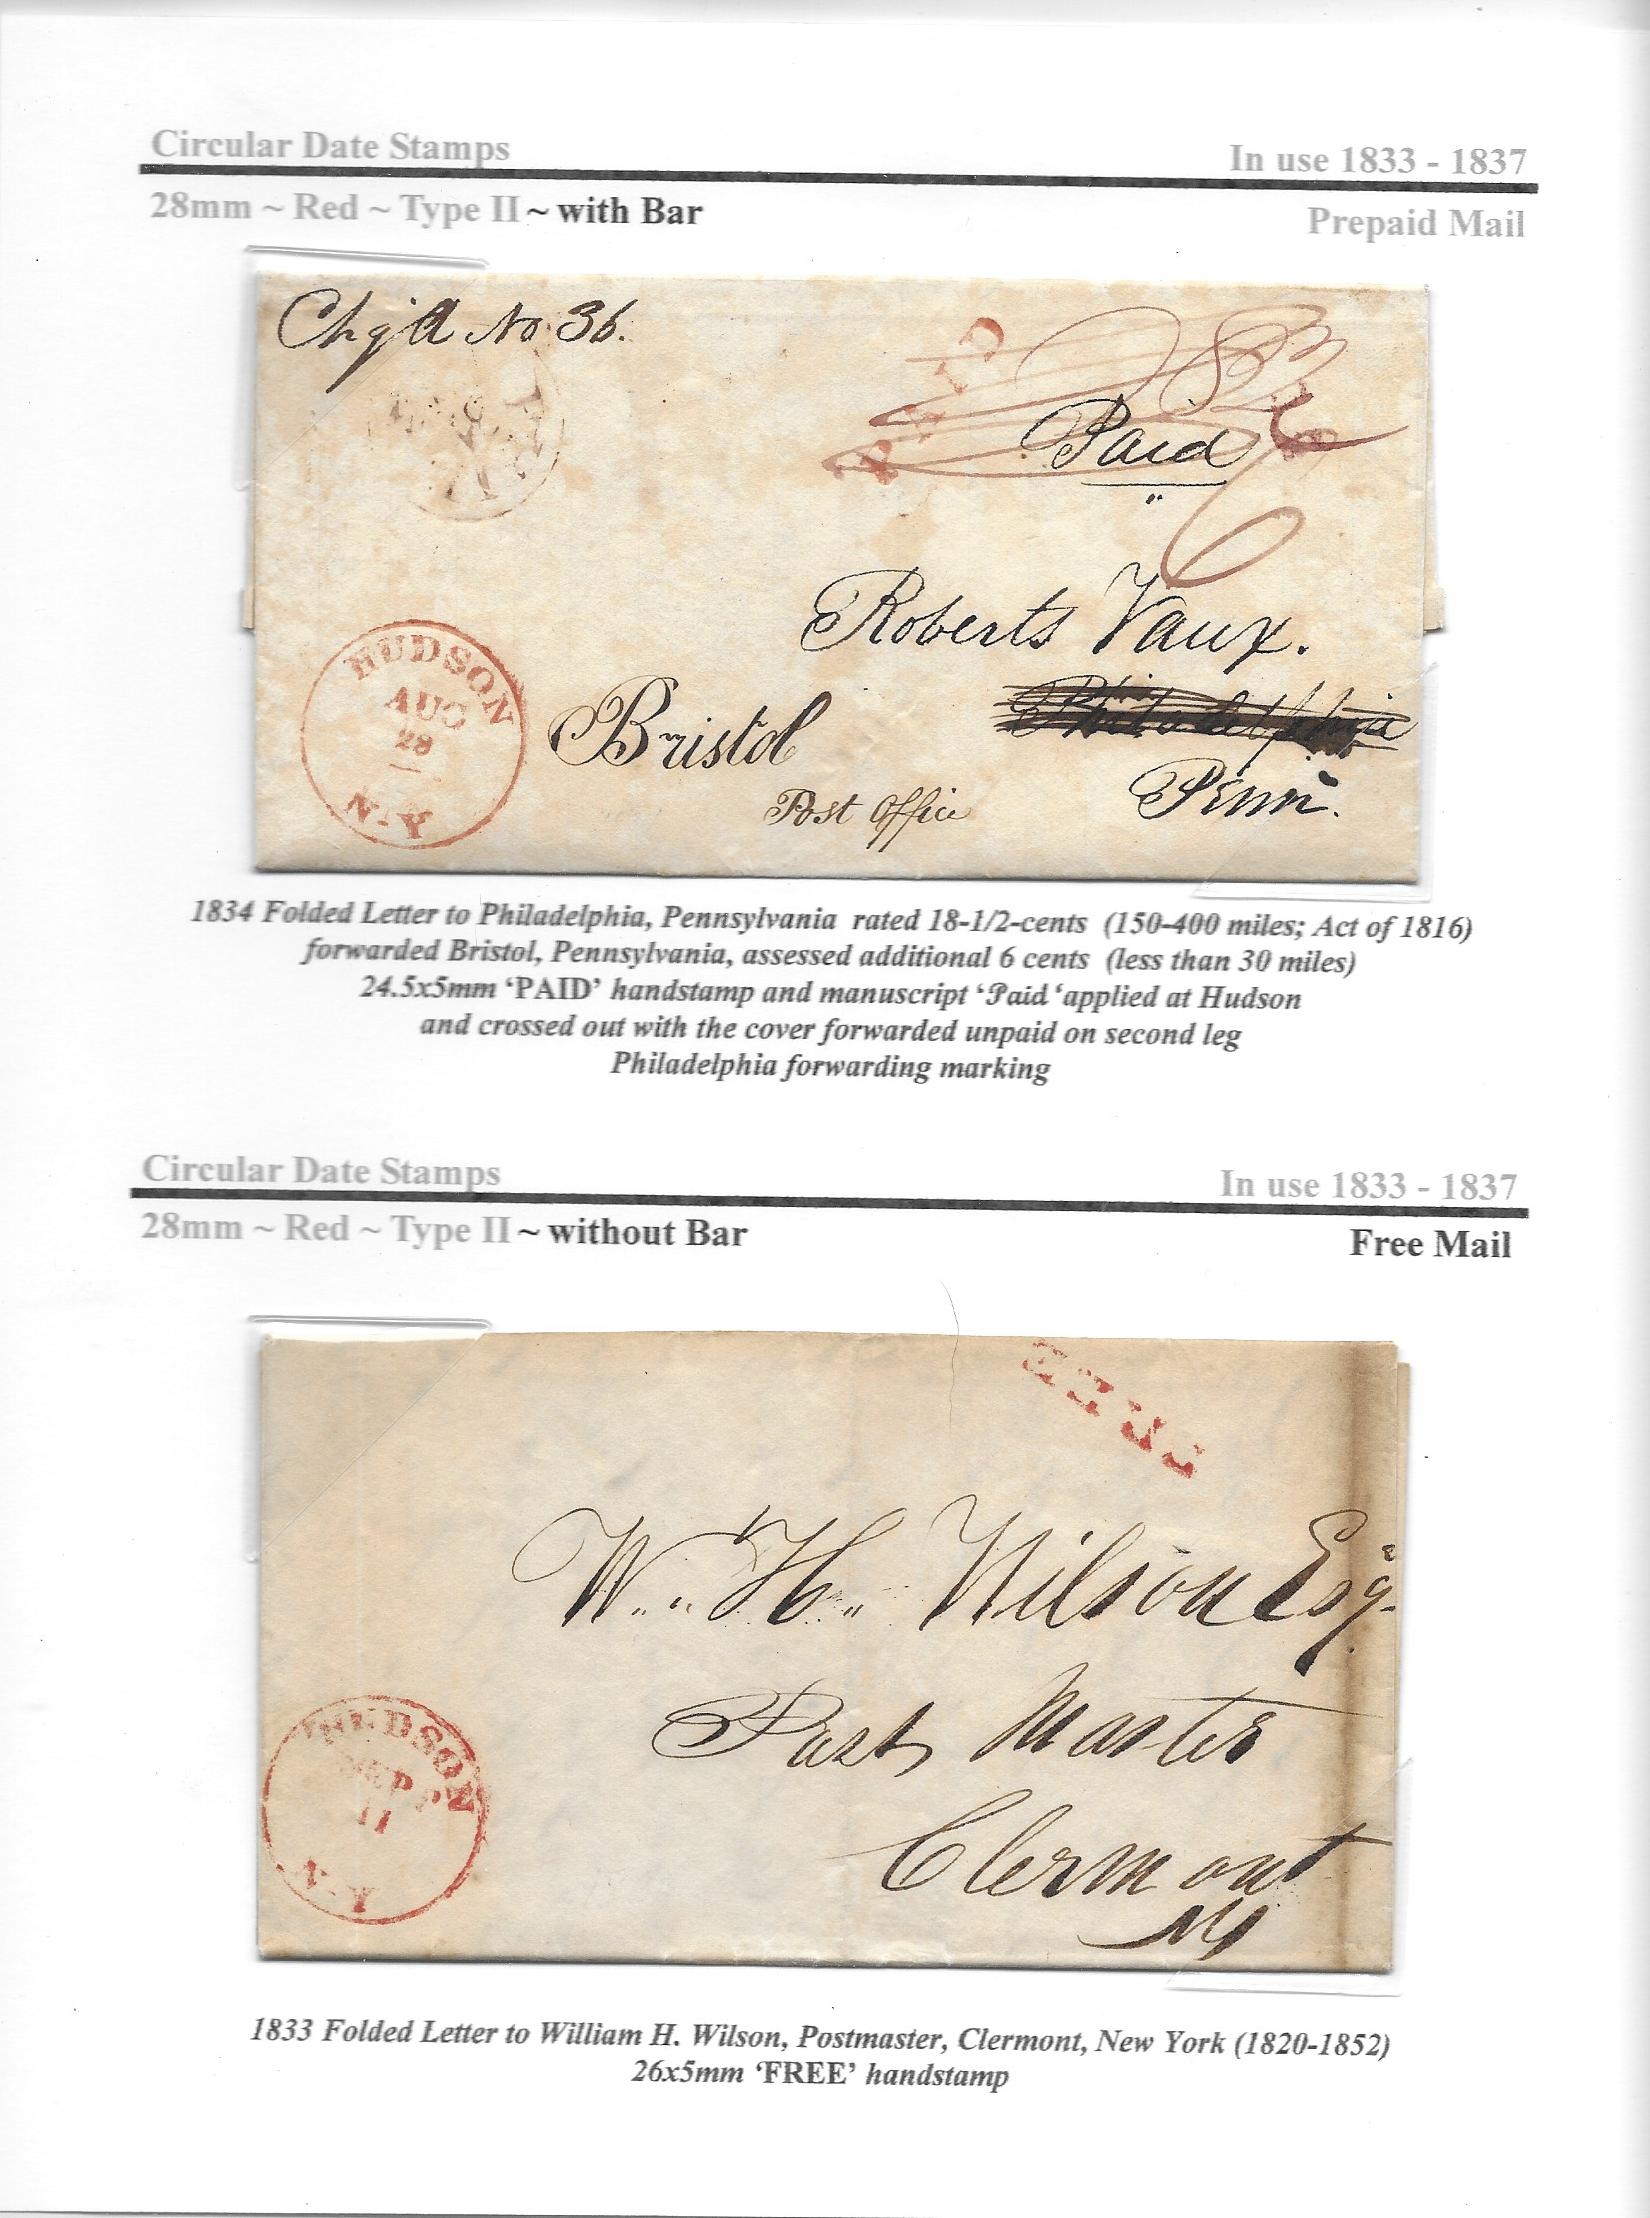 Circular Date Stamps
In use 1833 - 1837
28mm ~ Red ~ Type II ~ with Bar
Prepaid Mail
Chg'd No 36.
PAID
Paid
6
Roberts Vaux.
HUDSON
AUG
28
N.Y
Bristol
Philadelphia
Post Office
Penn.
1834 Folded Letter to Philadelphia, Pennsylvania rated 18-1/2-cents (150-400 miles; Act of 1816)
forwarded Bristol, Pennsylvania, assessed additional 6 cents (less than 30 miles)
24.5x5mm ‘PAID’ handstamp and manuscript ‘Paid‘applied at Hudson
and crossed out with the cover forwarded unpaid on second leg
Philadelphia forwarding marking
Circular Date Stamps
In use 1833 - 1837
28mm ~ Red ~ Type II ~ without Bar
Free Mail
FREE
W. H. Wilson Esq
Post Master
Clermont
NY
HUDSON
SEP
11
N.Y
1833 Folded Letter to William H. Wilson, Postmaster, Clermont, New York (1820-1852)
26x5mm ‘FREE’ handstamp